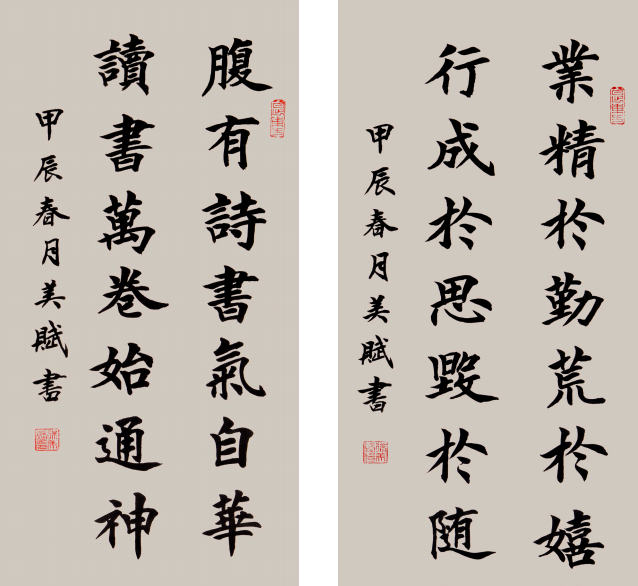 業精於勤荒於嬉
行成於思毀於随
甲辰春月美賦書
腹有詩書氣自華
讀書萬卷始通神
甲辰春月美賦書